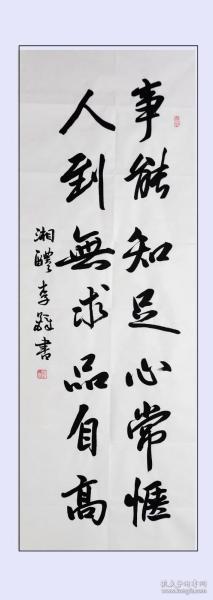 事能知足心常惬
人到無求品自高
湘醴李書